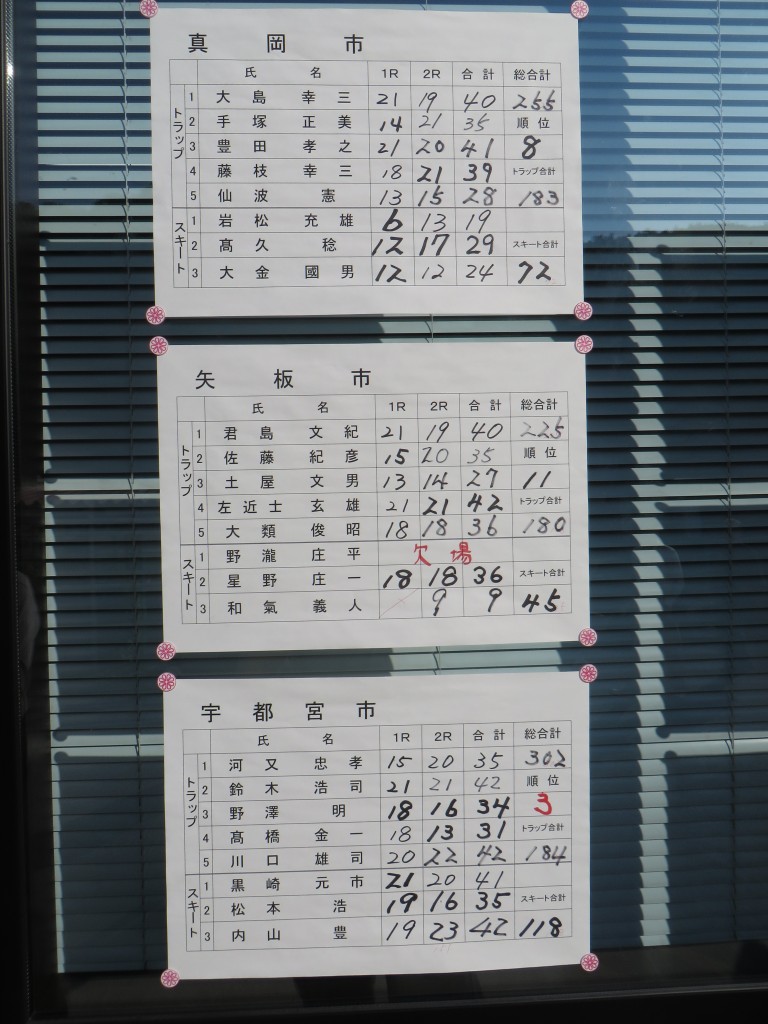 真岡市
氏名 1R 2R 合計 総合計
トラップ 1 大島幸三 21 19 40 255
2 手塚正美 14 21 35 順位
3 豊田孝之 21 20 41 8
4 藤枝幸三 18 21 39 トラップ合計
5 仙波憲 13 15 28 183
スキート 1 岩松充雄 6 13 19
2 髙久稔 12 17 29 スキート合計
3 大金國男 12 12 24 72
矢板市
氏名 1R 2R 合計 総合計
トラップ 1 君島文紀 21 19 40 225
2 佐藤紀彦 15 20 35 順位
3 土屋文男 13 14 27 11
4 左近士玄雄 21 21 42 トラップ合計
5 大類俊昭 18 18 36 180
スキート 1 野瀧庄平 欠場
2 星野庄一 18 18 36 スキート合計
3 和氣義人 9 9 45
宇都宮市
氏名 1R 2R 合計 総合計
トラップ 1 河又忠孝 15 20 35 302
2 鈴木浩司 21 21 42 順位
3 野澤明 18 16 34 3
4 髙橋金一 18 13 31 トラップ合計
5 川口雄司 20 22 42 184
スキート 1 黒崎元市 21 20 41
2 松本浩 19 16 35 スキート合計
3 内山豊 19 23 42 118